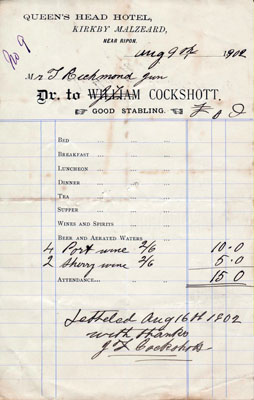 QUEEN'S HEAD HOTEL,
KIRKBY MALZEARD,
NEAR RIPON.
No 9
Aug 9th 1902
Mr T Richmond Jun
Dr. to WILLIAM COCKSHOTT,
GOOD STABLING.
£ s D
BED
BREAKFAST
LUNCHEON
DINNER
TEA
SUPPER
WINES AND SPIRITS
BEER AND AERATED WATERS
4 Port wine 2/6 10.0
2 Sherry wine 2/6 5.0
ATTENDANCE... 15 0
Settled Aug 16th 1902
with thanks